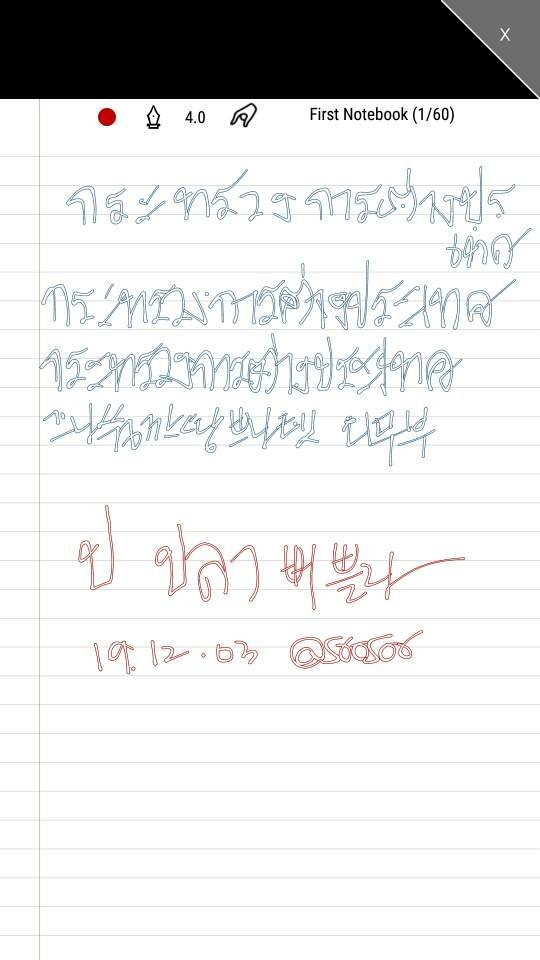 X
4.0 First Notebook (1/60)
กระทรวงการต่างประ
เทศ
กระทรวงการต่างประเทศ
กระทรวงการต่างประเทศ
외무부
ป ปลา 뻐 쁠라
19.12.03